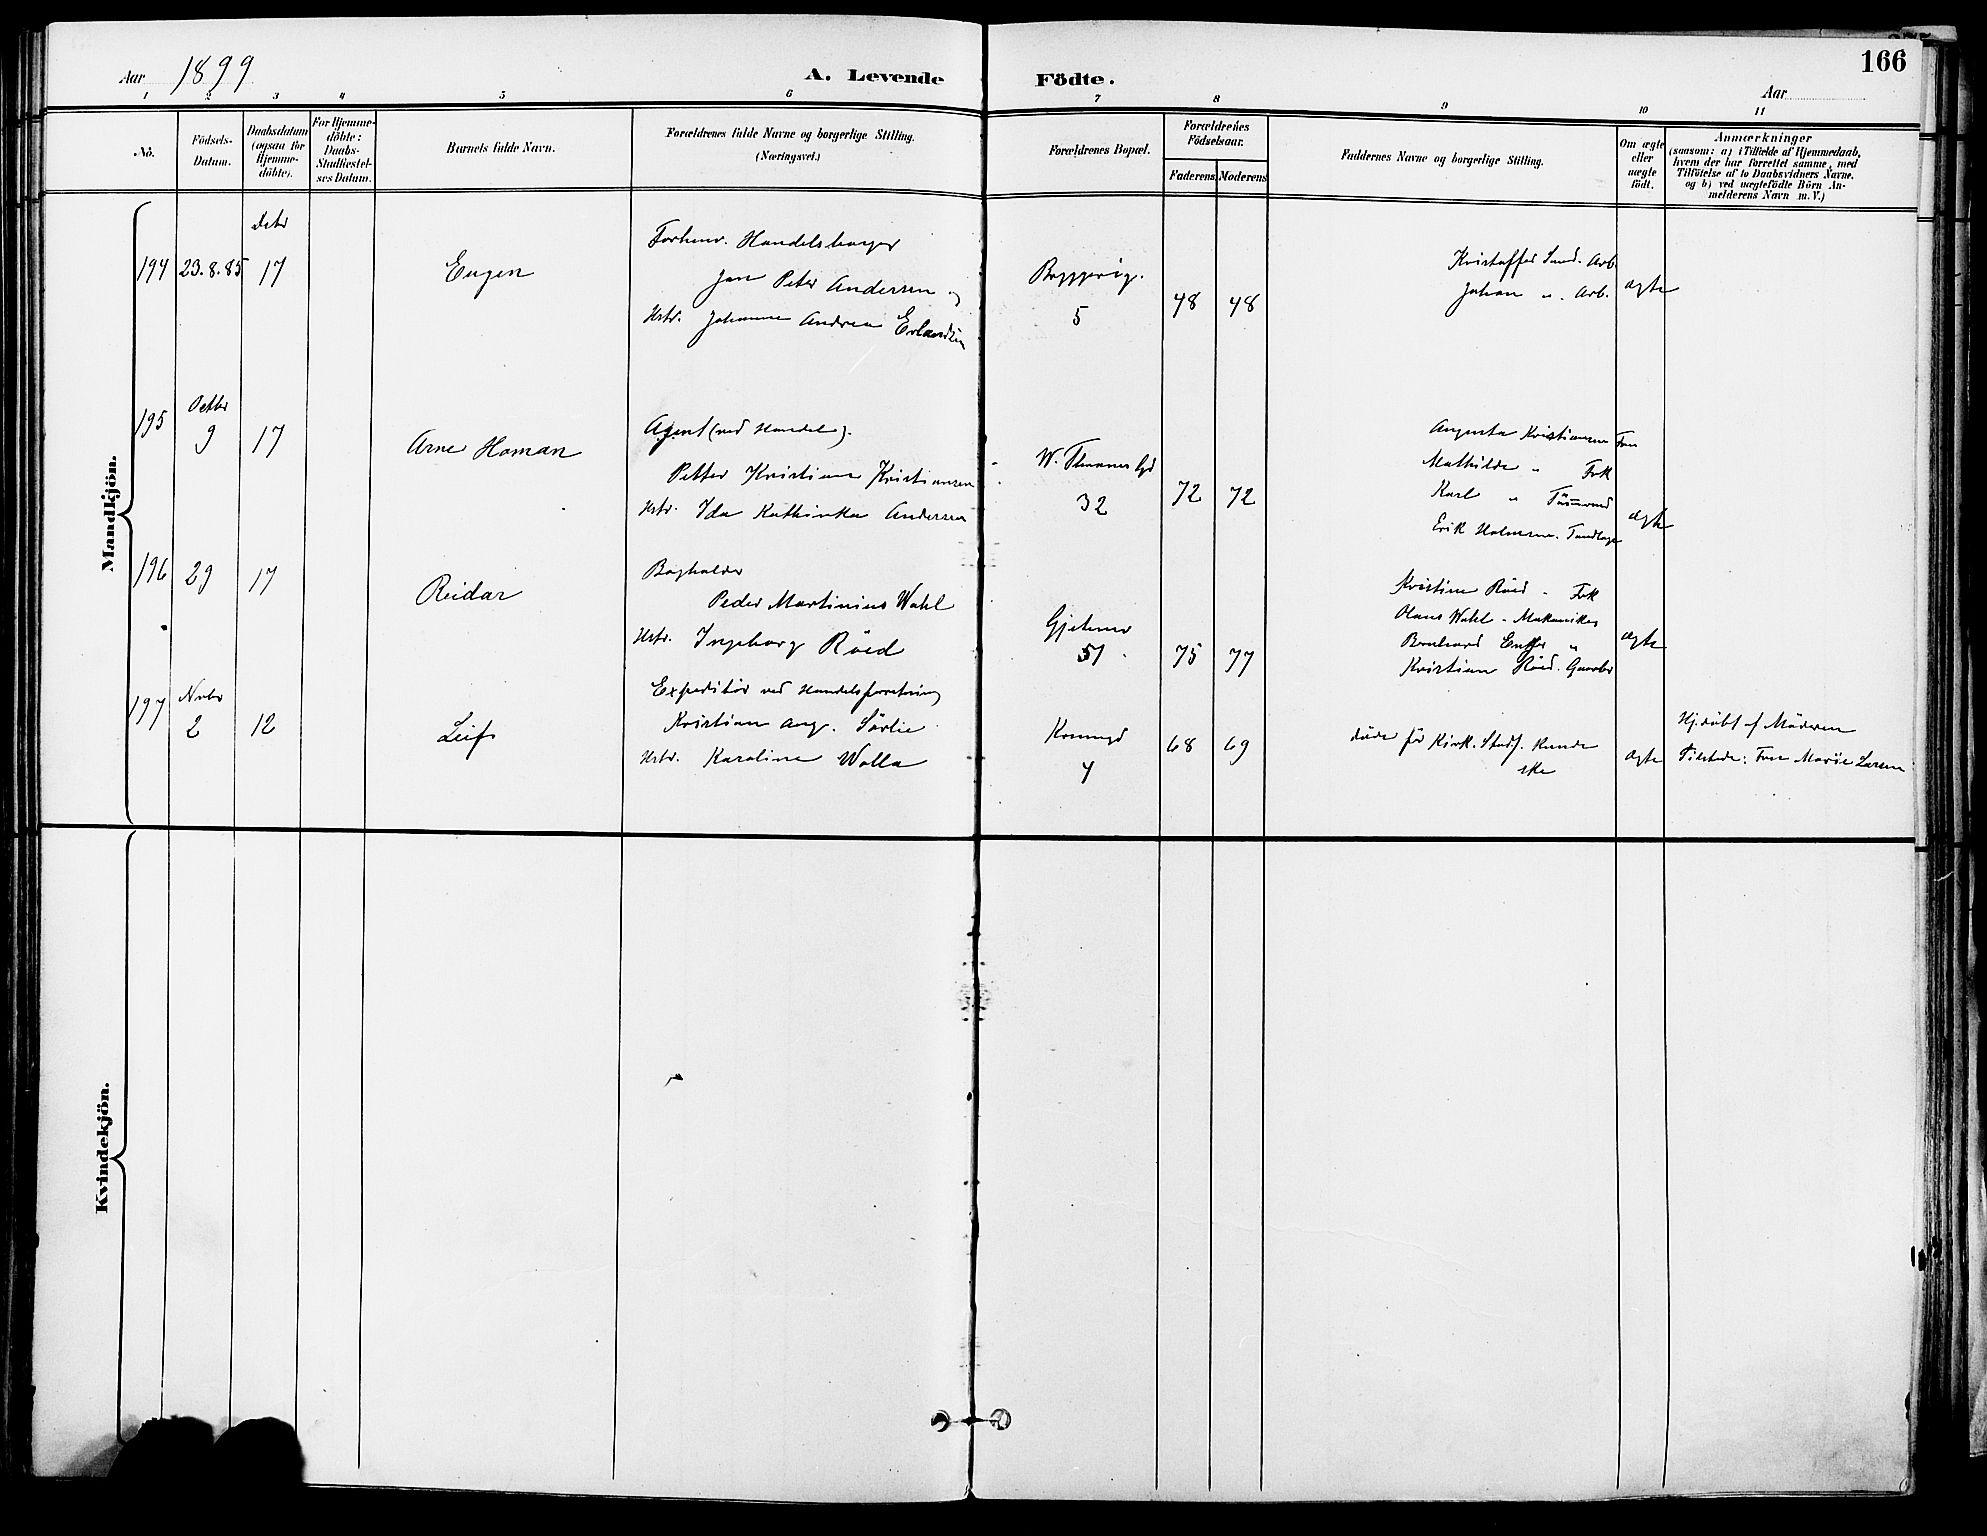 Aar 1899
A. Levende
Födte.
Aar
166
1 2 3 4 5 6 7 8 9 10 11
No.
Födsels-
Datum.
Daabsdatum
(ogsaa for
Hjemme-
döbte).
For Hjemme-
döbte:
Daabs-
Stadfæstel-
ses Datum.
Barnets fulde Navn.
Forældrenes fulde Navne og borgerlige Stilling.
(Næringsvei.)
Forældrenes Bopæl.
Forældrenes
Födselsaar.
Faderens Moderens
Faddernes Navne og borgerlige Stilling.
Om ægte
eller
uægte
födt.
Anmærkninger
(saasom: a) i Tilfælde af Hjemmedaab,
hvem der har forrettet samme, med
Tilföielse af to Daabsvidners Navne.
og b) ved uægtefödte Börn An-
melderens Navn m. V.)
Mandkjön.
194 23.8.85 17
Eugen
Forhenv. Handelsborger
Peter Andersen og
Hstr. Johanne Andrea
5
48 48
Kristoffer Sund. Arb.
Johan " . Arb.
ægte
195
Octbr
9
17
Arne Homan
Agent (ved Handel).
Petter Kristian Kristiansen
Hstr. Ida Kathinka Andersen
32
72 72
Augusta Kristiansen Fru
Mathilde " Frk
Karl "
Erik
ægte
196 29 17
Reidar
Bogholder
Peder Martinius Wahl
Hstr. Ingeborg Röed
51
75 77
Kristine Röed - Frk
Olaus Wahl - Mekaniker
Bernhard "
Kristian Röed. Garver
ægte
197
Nvbr
2
12
Leif
Expeditör ved Handelsforretning
Kristian Aug. Sörlie
Hstr. Karoline Wolla
4
68 69
döde för Kirk. Stadf. kunde
ske
ægte
Hj.döbt af Moderen
Tilstede: Fru Marie Larsen
Kvindekjön.